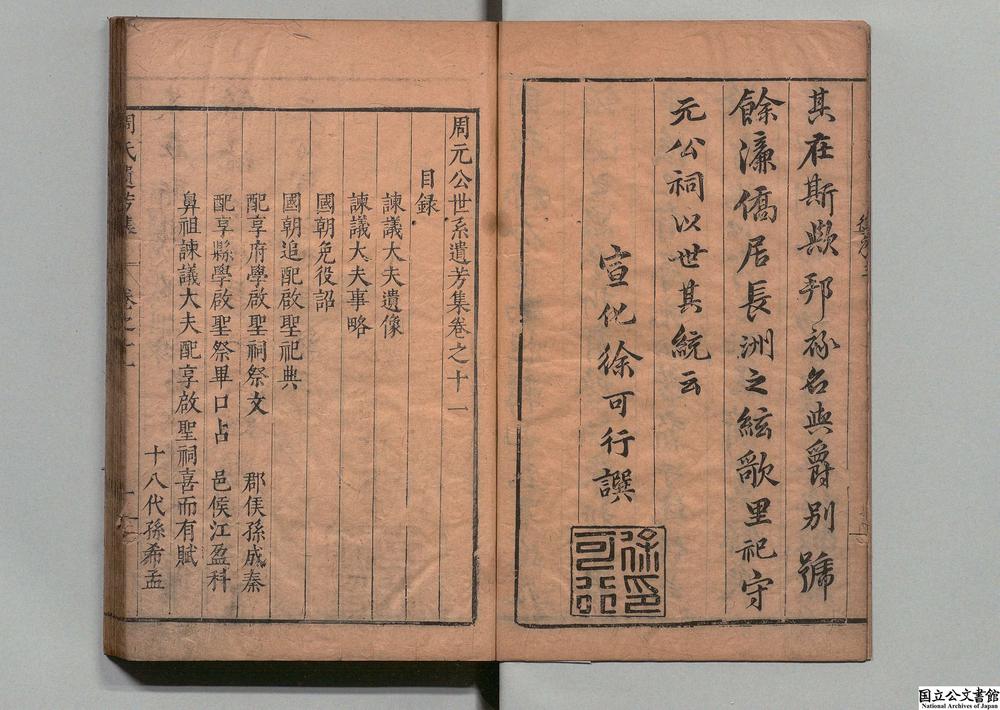 其在斯歟邦祿名與爵別號
餘濂僑居長洲之絃歌里祀守
元公祠以世其統云
宣化徐可行譔
徐印可行
周元公世系遺芳集卷之十一
目録
諫議大夫遺像
諫議大夫事略
國朝免役詔
國朝追配啟聖祀典
配享府學啟聖祠祭文 郡侯孫成泰
配享縣學啟聖祭畢口占 邑侯江盈科
鼻祖諫議大夫配享啟聖祠喜而有賦
十八代孫希孟
周氏遺芳集 卷之十一
国立公文書館
National Archives of Japan